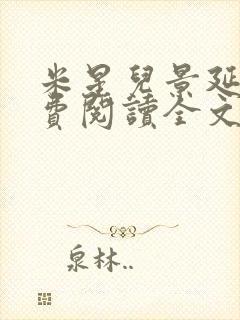 米星兒景延
費閱讀全文
泉林..